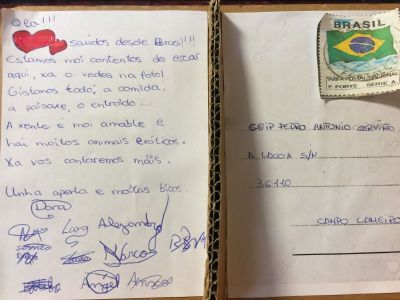 Ola!!!
saúdos desde Brasil!!!!
Estamos moi contentos de estar
aquí, xa o vedes na foto!
Gústanos todo; a comida,
a paisaxe, o entroido...
A xente é moi amable e
hai moitos animais exóticos.
Xa vos contaremos máis.
Unha aperta e moitos bicos.
Dora
Lara Alejandro
Marcos
Ángel
BRASIL
1º PORTE SÉRIE A
CEIP PEDRO ANTONIO CERVIÑO
A LAGOA S/N
36110
CAMPO LAMEIRO